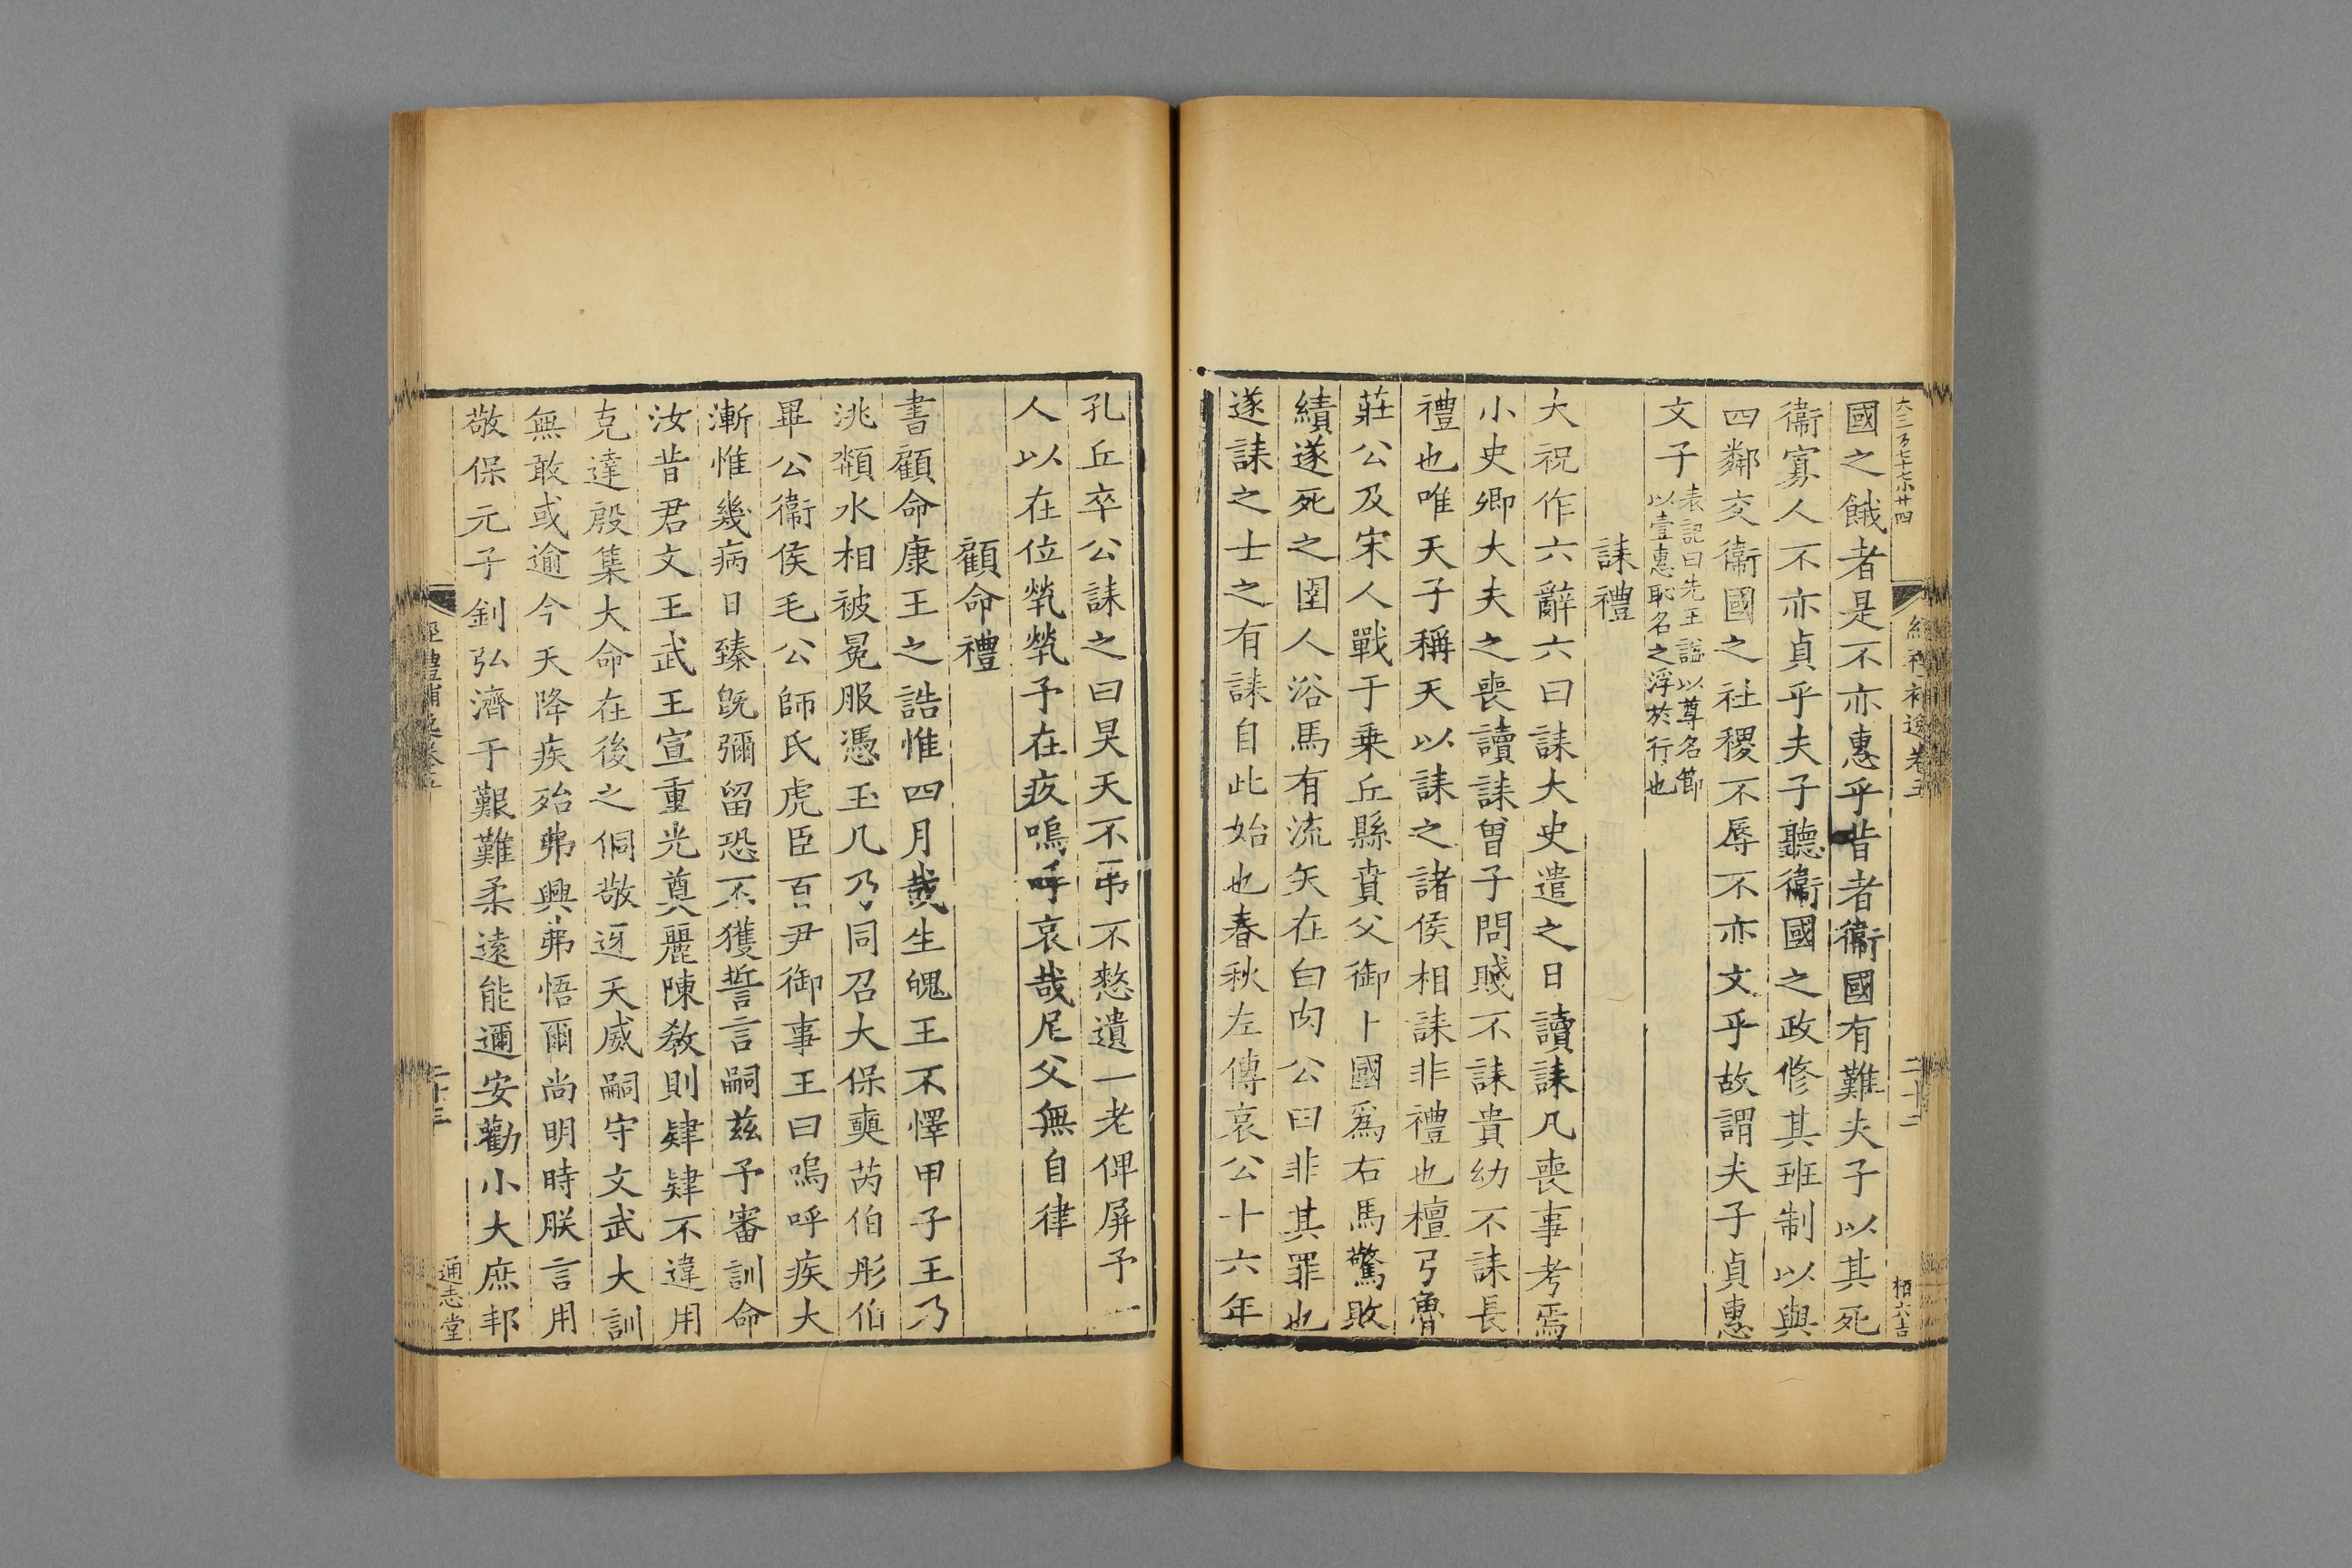 國之餓者是不亦惠乎昔者衞國有難夫子以其死
衞寡人不亦貞乎夫子聽衞國之政修其班制以與
四鄰交衞國之社稷不辱不亦文乎故謂夫子貞惠
文子表記曰先王諡以尊名節
以壹惠恥名之浮於行也
誄禮
大祝作六辭六曰誄大史遣之日讀誄凡喪事考焉
小史卿大夫之喪讀誄曾子問賤不誄貴幼不誄長
禮也唯天子稱天以誄之諸侯相誄非禮也檀弓魯
莊公及宋人戰于乗丘縣賁父御卜國爲右馬驚敗
績遂死之圉人浴馬有流矢在白肉公曰非其罪也
遂誄之士之有誄自此始也春秋左傳哀公十六年
孔丘卒公誄之曰旻天不弔不憖遺一老俾屏予一
人以在位煢煢予在疚嗚呼哀哉尼父無自律
顧命禮
書顧命康王之誥惟四月哉生魄王不懌甲子王乃
洮頮水相被冕服憑玉几乃同召大保奭芮伯彤伯
畢公衞侯毛公師氏虎臣百尹御事王曰嗚呼疾大
漸惟幾病日臻旣彌留恐不獲誓言嗣茲予審訓命
汝昔君文王武王宣重光奠麗陳敎則肄肄不違用
克達殷集大命在後之侗敬迓天威嗣守文武大訓
無敢或逾今天降疾殆弗興弗悟爾尚明時朕言用
敬保元子釗弘濟于艱難柔遠能邇安勸小大庶邦
二十三
通志堂